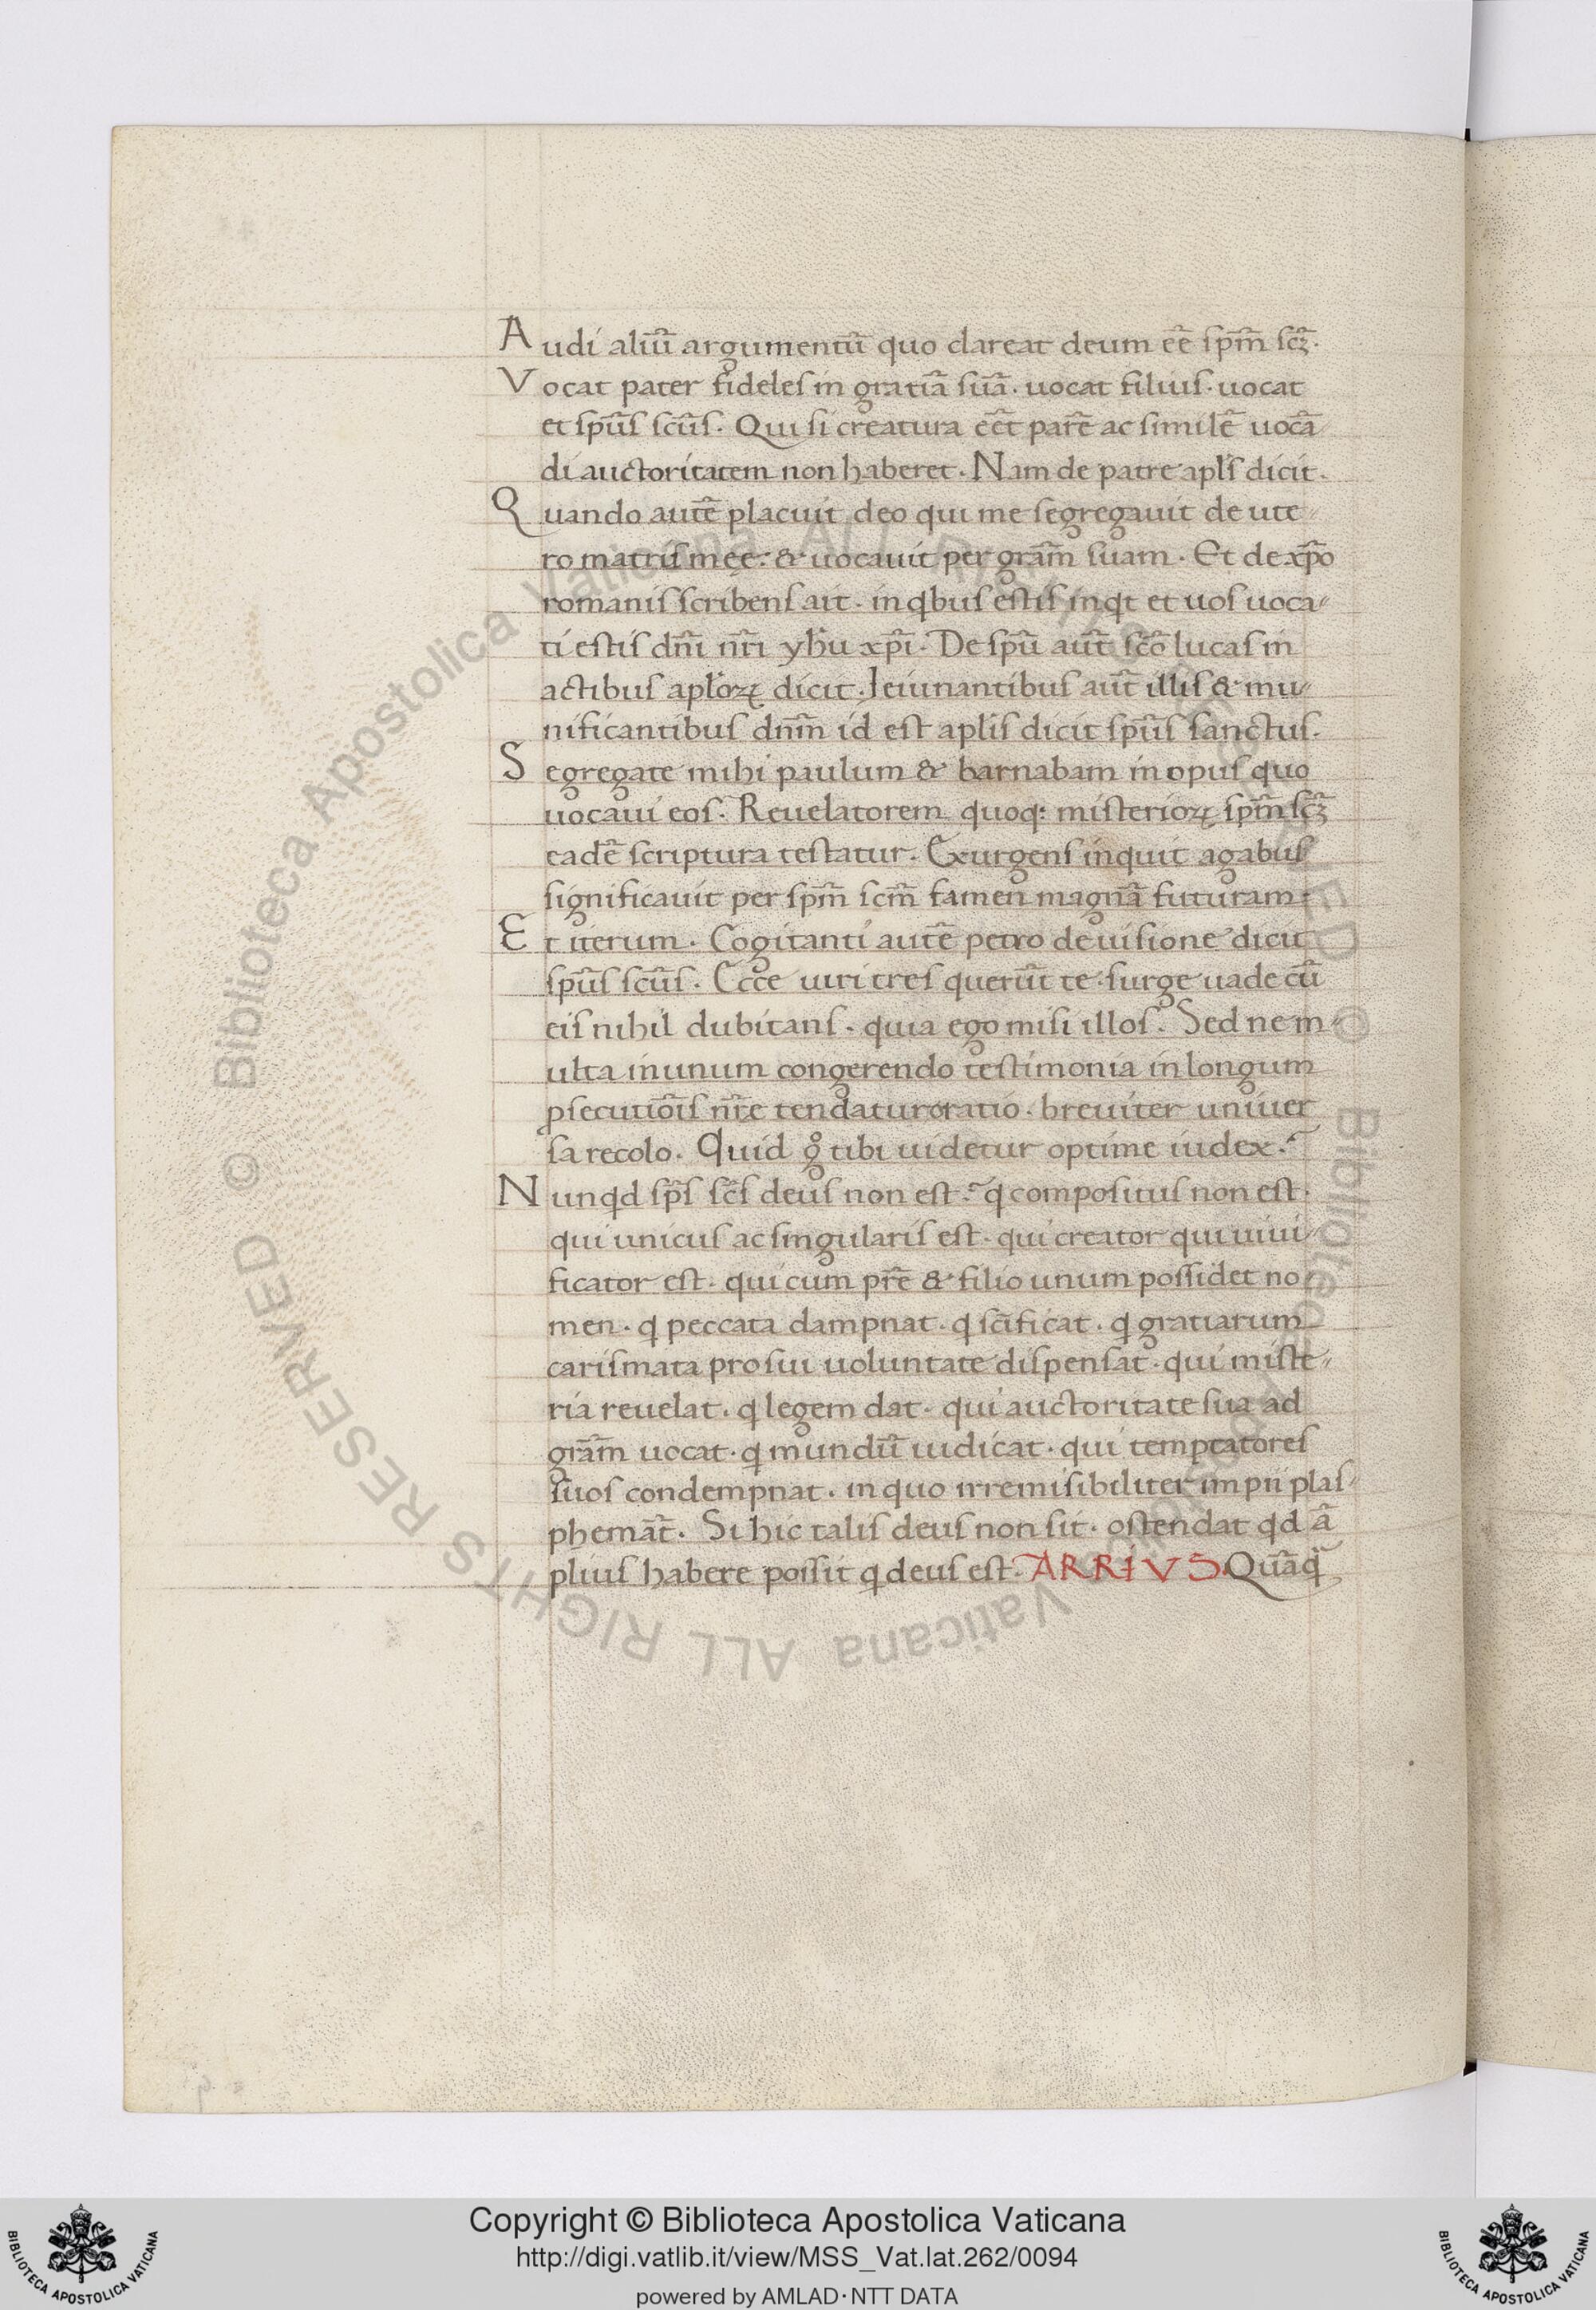 Audi aliū argumentū quo clareat deum eē spm̄ scꝫ.
Vocat pater fideles in gratiā suā. uocat filius. uocat
et spūs scūs. Qui si creatura eēt parē ac similē uocā
di auctoritatem non haberet. Nam de patre apl̄s dicit.
Quando autē placuit deo qui me segregauit de ute
ro matris meę: & uocauit per grām suam. Et de xp̄o
romanis scribens ait. in qbus estis inqt et uos uoca
ti estis dn̄i nr̄i yh̄u xp̄i. De spū aut̄ scō lucas in
actibus aplōꝝ dicit. Ieiunantibus aut̄ illis & mu
nificantibus dnm̄ id est aplis dicit spūs sanctus.
Segregate mihi paulum & barnabam in opus quo
uocaui eos. Reuelatorem quoq: misterioꝝ spm̄ scꝫ
eadē scriptura testatur. Exurgens inquit agabus
significauit per spm̄ scm̄ famem magnā futuram:
Et iterum. Cogitanti autē petro de uisione dicit
spūs scūs. Ecce uiri tres querūt te. surge uade cū
eis nihil dubitans. quia ego misi illos. Sed ne m
ulta in unum congerendo testimonia in longum
ꝑsecutiōis nr̄e tendatur oratio. breuiter uniuer
sa recolo. Quid gͦ tibi uidetur optime iudex?
Nunqd sp̄s sc̄s deus non est? q compositus non est.
qui unicus ac singularis est. qui creator qui uiui
ficator est. qui cum pr̄e & filio unum possidet no
men. q peccata dampnat. q scīficat. q gratiarum
carismata pro sui uoluntate dispensat. qui miste
ria reuelat. q legem dat. qui auctoritate sua ad
grām uocat. q mundū iudicat. qui temptatores
suos condempnat. in quo irremisibiliter impii plas
phemāt. Si hic talis deus non sit. ostendat qd ā
plius habere possit q deus est. ARRIVS Quāq̄
Copyright © Biblioteca Apostolica Vaticana
http://digi.vatlib.it/view/MSS_Vat.lat.262/0094
powered by AMLAD·NTT DATA
BIBLIOTECA APOSTOLICA VATICANA
BIBLIOTECA APOSTOLICA VATICANA
© Biblioteca Apostolica Vaticana ALL RIGHTS RESERVED © Biblioteca Apostolica Vaticana ALL RIGHTS RESERVED